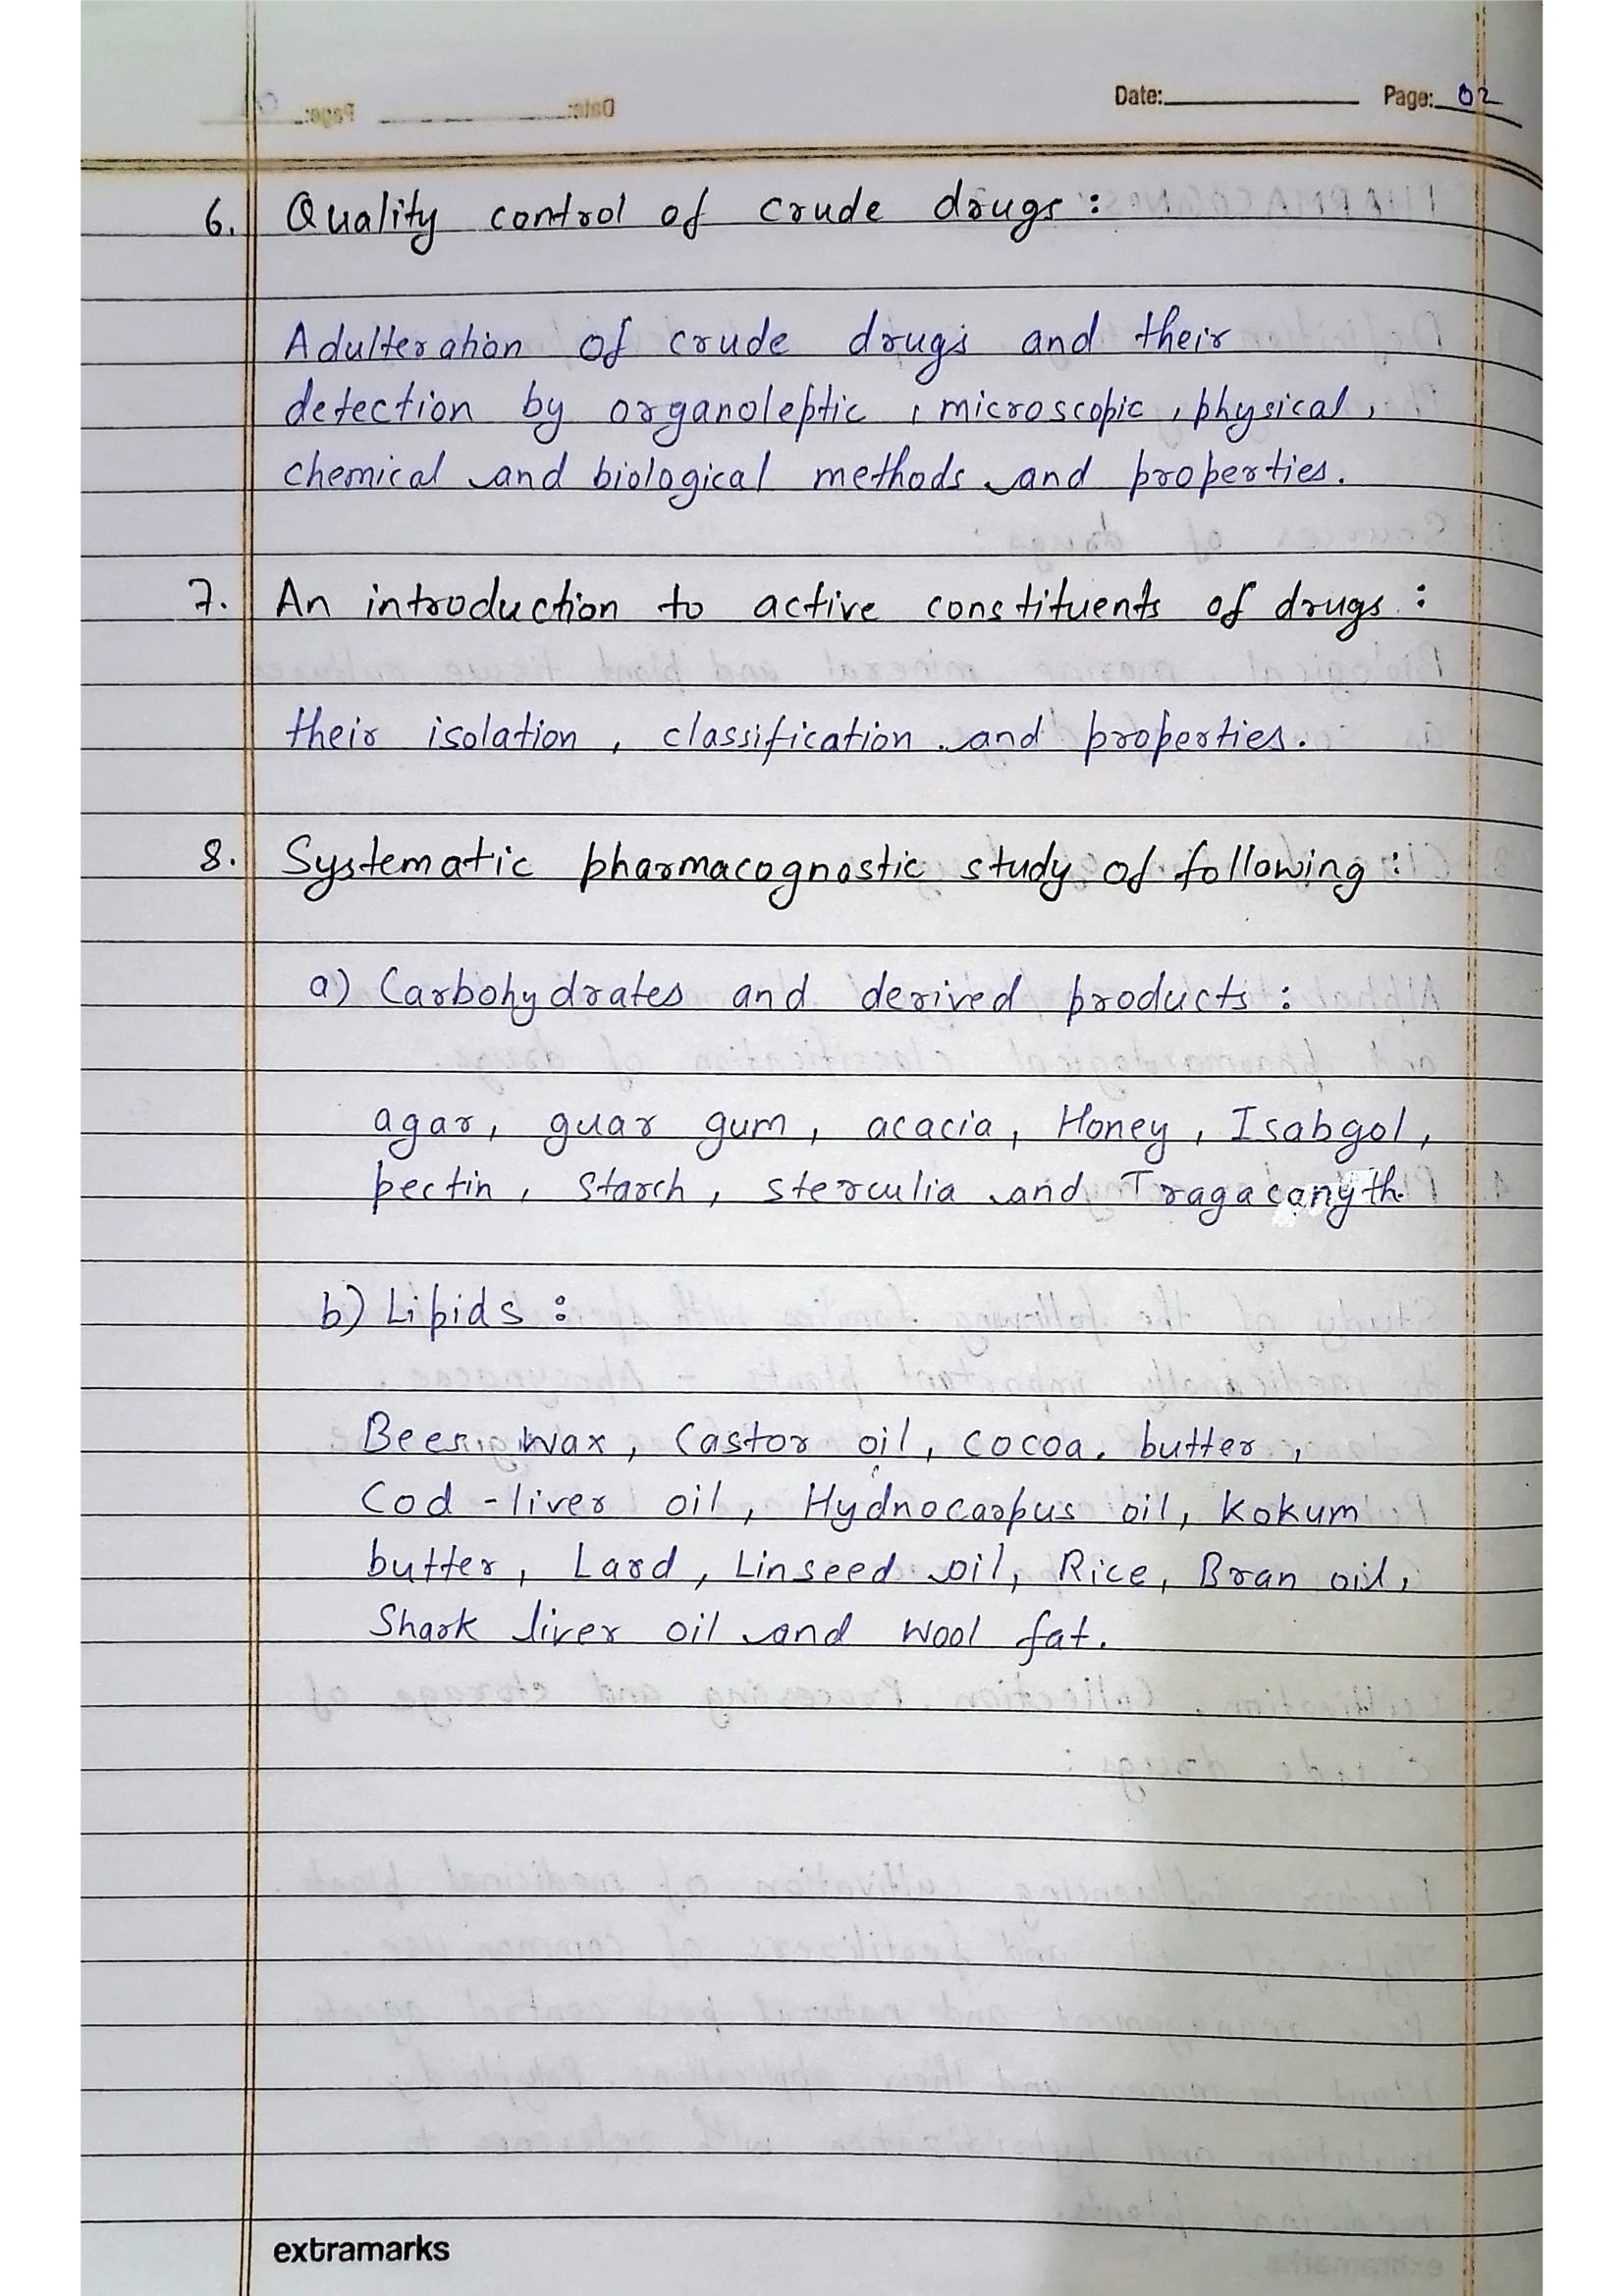 Date: Page: 02
6. Quality control of crude drugs :
Adulteration of crude drugs and their
detection by organoleptic, microscopic, physical,
chemical and biological methods and properties.
7. An introduction to active constituents of drugs :
their isolation, classification and properties.
8. Systematic pharmacognostic study of following :
a) Carbohydrates and derived products :
agar, guar gum, acacia, Honey, Isabgol,
pectin, Starch, sterculia and Tragacanyth.
b) Lipids :
Bees wax, Castor oil, cocoa butter,
Cod-liver oil, Hydnocarpus oil, Kokum
butter, Lard, Linseed oil, Rice, Bran oil,
Shark liver oil and wool fat.
extramarks